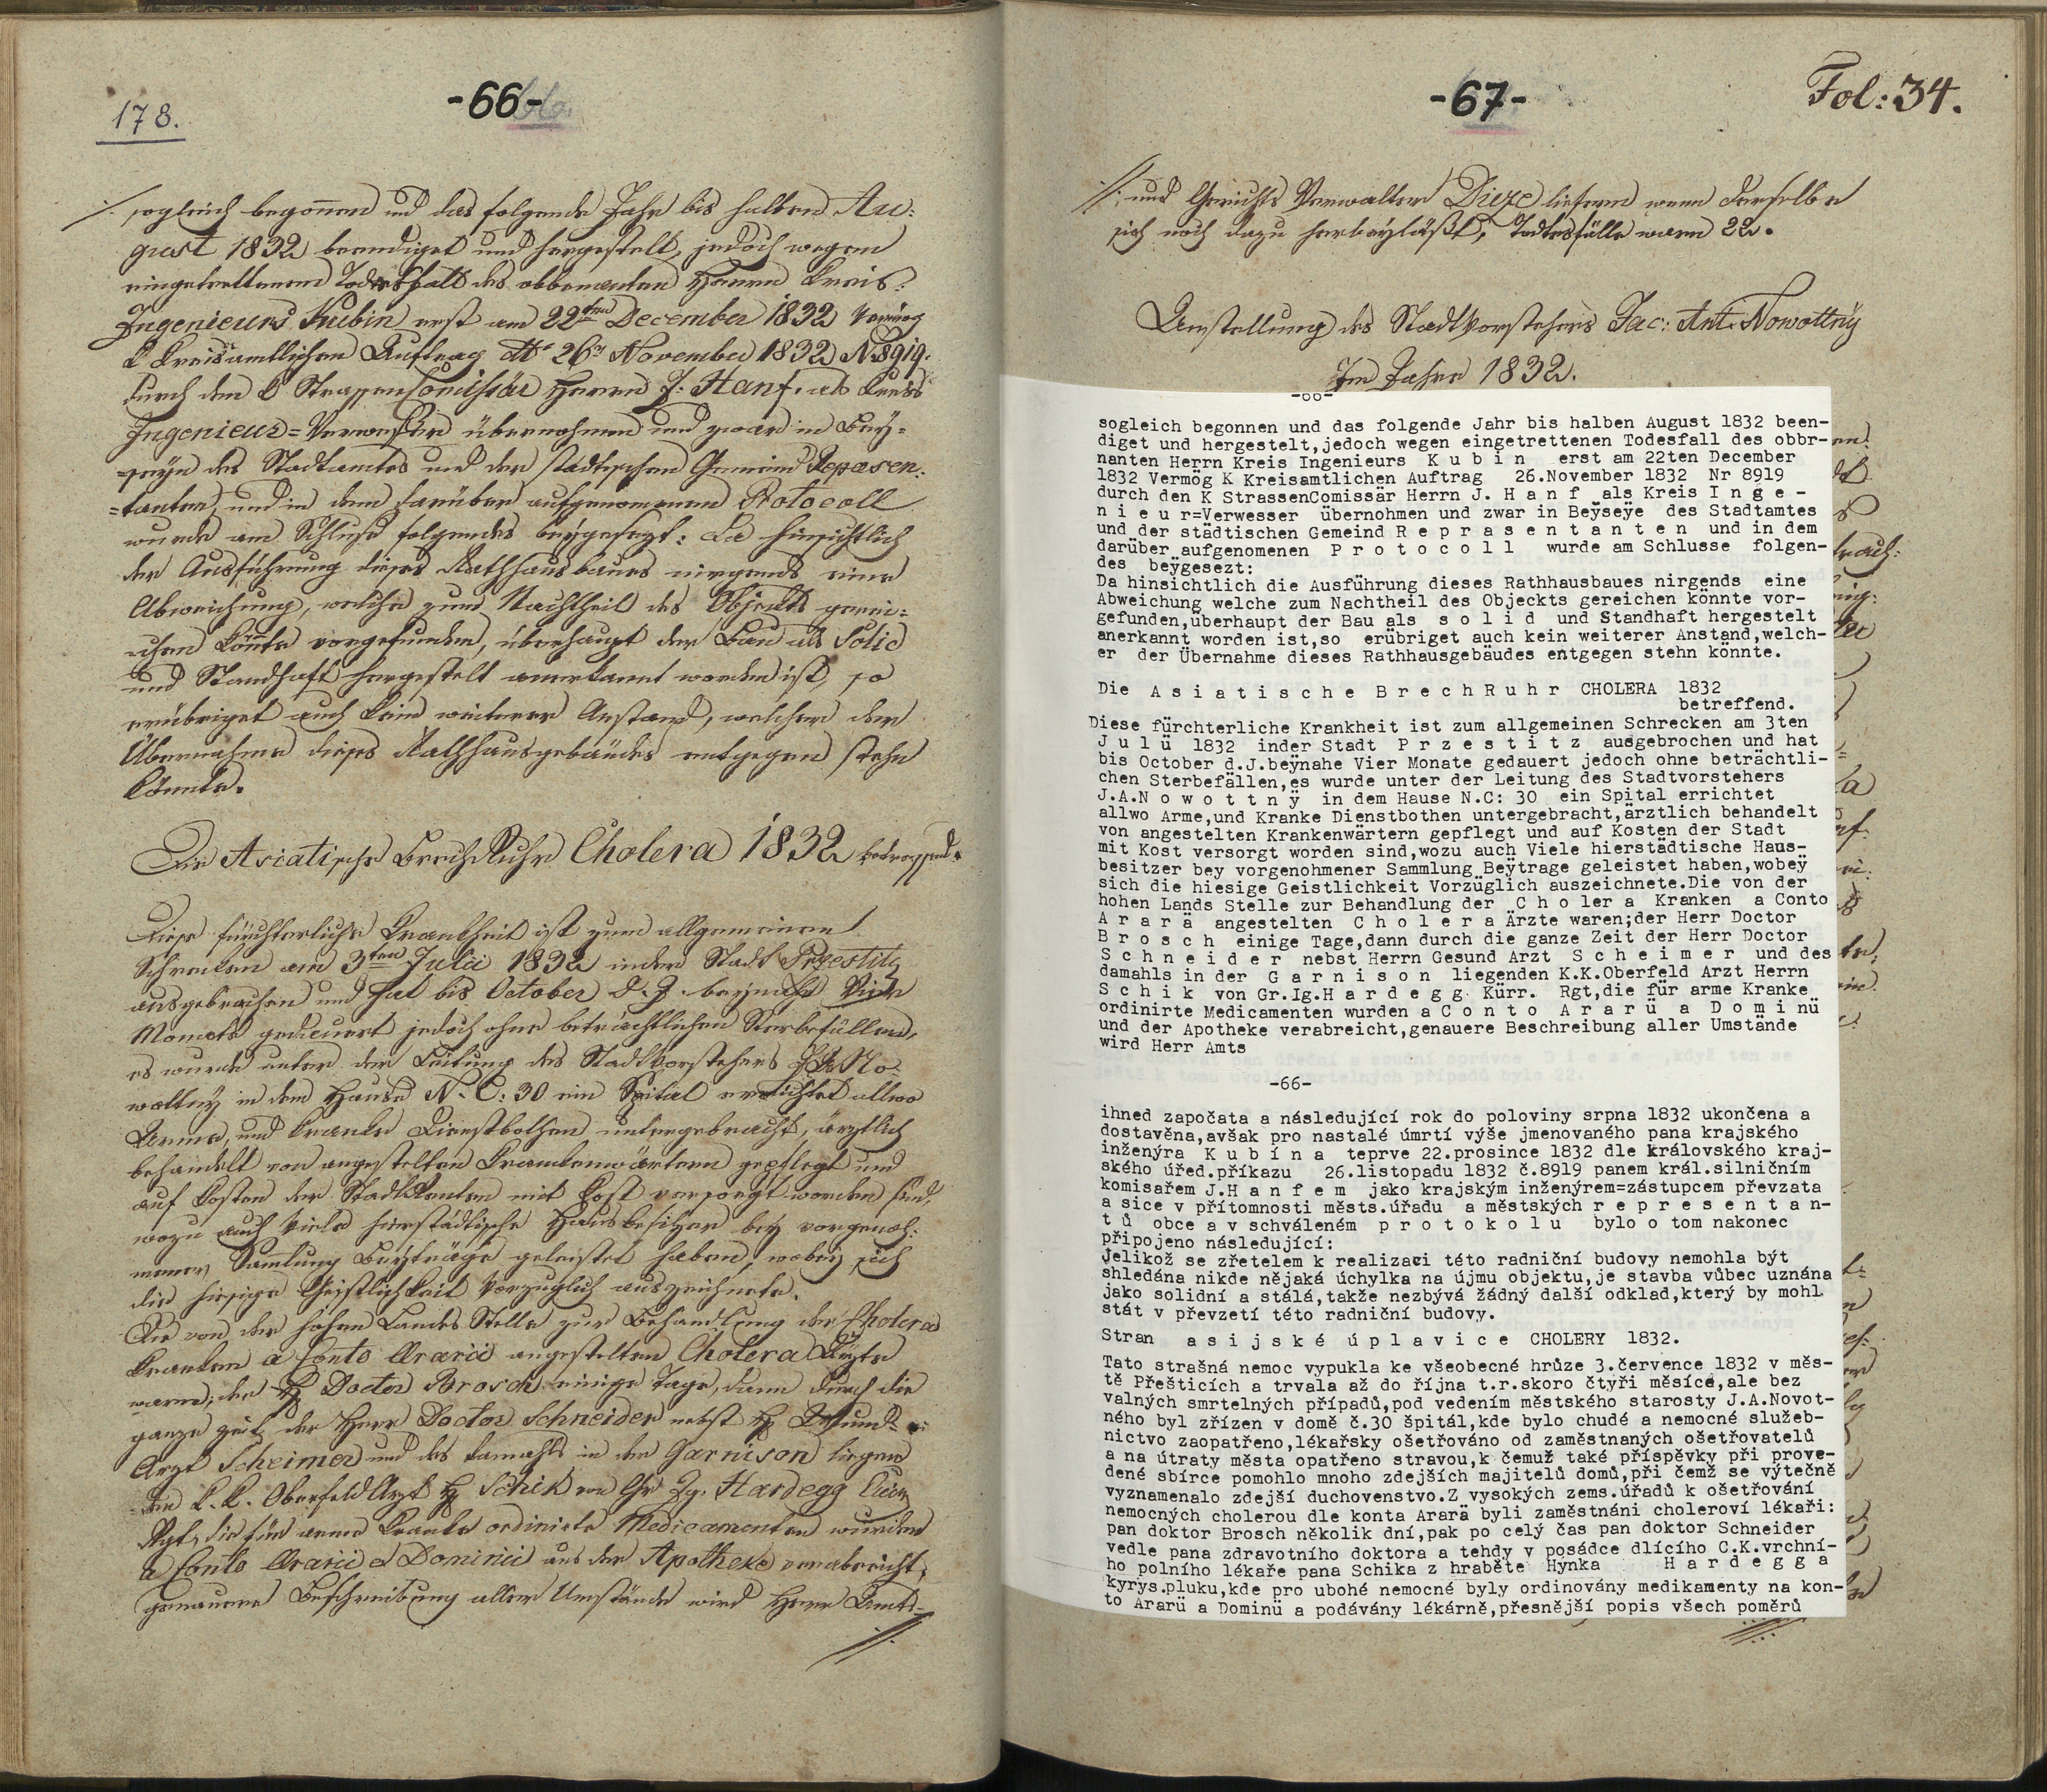 178.
-66-
sogleich begonnen und das folgende Jahr bis halben Au:
gust 1832 beendiget und hergestelt, jedoch wegen
eingetrettenen Todesfall des obbenanten Herrn Kreis:
Ingenieurs Kubin erst am 22ten December 1832 Vermög
K Kreisamtlichen Auftrag 26n November 1832 Nr 8919.
durch den K StrassenComissär Herrn J. Hanf als Kreis
Ingenieur=Verweser übernohmen und zwar in Beÿ=
=seÿn des Stadtamtes und der städtischen Gemeind Repäsen:
=tanten, und in dem darüber aufgenomenen Protocoll
wurde am Schluße folgendes beÿgesezt: Da hinsichtlich
der Ausführung dieses Rathhausbaues nirgends eine
Abweichung, welche zum Nachtheil des Objeckts gerei:
chen könnte vorgefunden, überhaupt der Bau als Solid
und Standhaft hergestelt anerkannt worden ist, so
erübriget auch kein weiterer Anstand, welcher der
Übernahme dieses Rathhausgebäudes entgegen stehn
könnte.
Die Asiatische BrechRuhr Cholera 1832 betreffend.
Diese fürchterliche Krankheit ist zum allgemeinen
Schrecken am 3ten Julii 1832 inder Stadt Przestitz
ausgebrochen und hat bis October d. J. beÿnahe Vier
Monate gedauert jedoch ohne beträchtlichen Sterbefällen,
es wurde unter der Leitung des Stadtvorstehers J.A. No=
wottnÿ in dem Hause N. C: 30 ein Spital errichtet allwo
Arme, und kranke Dienstbothen untergebracht, ärztlich
behandelt von angestelten Krankenwärtern gepflegt und
auf Kosten der Stadt Renten mit Kost versorgt worden sind,
wozu auch Viele hierstädtische Hausbesitzer beÿ vorgenoh:
mener Samlung Beÿträge geleistet haben, wobeÿ sich
die hiesige Geistlichkeit Vorzüglich auszeichnete.
Die von der hohen Landes Stelle zur Behandlung der Cholera
Kranken a Conto Ararii angestelten Cholera Ärzte
waren; der H Doctor Brosch einige Tage, dann durch die
ganze Zeit der Herr Doctor Schneider nebst H Gesund=
Arzt Scheimer und des damahls in der Garnison liegen
den K. K. Oberfeld Arzt H Schik von Gr Ig. Hardegg Kürr
Rgt, die für arme Kranke ordinirte Medicamenten wurden
a Conto Ararii a Dominii aus der Apotheke verabreicht,
genauere Beschreibung aller Umstände wird Herr Amts=
-67-
Fol: 34.
und Gerichts Verwalter Dieze liefern wenn derselbe
sich noch dazu herbeÿläßt, Todtesfälle waren 22.
Anstellung des Stadtvorstehers Jac: Ant. Nowottnÿ
Im Jahre 1832.
-66-
sogleich begonnen und das folgende Jahr bis halben August 1832 been-
diget und hergestelt,jedoch wegen eingetrettenen Todesfall des obbr-
nanten Herrn Kreis Ingenieurs K u b i n erst am 22ten December
1832 Vermög K Kreisamtlichen Auftrag 26.November 1832 Nr 8919
durch den K StrassenComissär Herrn J. H a n f als Kreis I n g e -
n i e u r=Verwesser übernohmen und zwar in Beÿseÿe des Stadtamtes
und der städtischen Gemeind R e p r a s e n t a n t e n und in dem
darüber aufgenomenen P r o t o c o l l wurde am Schlusse folgen-
des beÿgesezt:
Da hinsichtlich die Ausführung dieses Rathhausbaues nirgends eine
Abweichung welche zum Nachtheil des Objeckts gereichen könnte vor-
gefunden,überhaupt der Bau als s o l i d und Standhaft hergestelt
anerkannt worden ist,so erübriget auch kein weiterer Anstand,welch-
er der Übernahme dieses Rathhausgebäudes entgegen stehn könnte.
Die A s i a t i s c h e B r e c h R u h r CHOLERA 1832
betreffend.
Diese fürchterliche Krankheit ist zum allgemeinen Schrecken am 3ten
J u l ü 1832 inder Stadt P r z e s t i t z ausgebrochen und hat
bis October d.J.beÿnahe Vier Monate gedauert jedoch ohne beträchtli-
chen Sterbefällen,es wurde unter der Leitung des Stadtvorstehers
J.A.N o w o t t n ÿ in dem Hause N.C: 30 ein Spital errichtet
allwo Arme,und Kranke Dienstbothen untergebracht,ärztlich behandelt
von angestelten Krankenwärtern gepflegt und auf Kosten der Stadt
mit Kost versorgt worden sind,wozu auch Viele hierstädtische Haus-
besitzer bey vorgenohmener Sammlung Beÿtrage geleistet haben,wobeÿ
sich die hiesige Geistlichkeit Vorzüglich auszeichnete.Die von der
hohen Lands Stelle zur Behandlung der C h o l e r a Kranken a Conto
A r a r ä angestelten C h o l e r a Ärzte waren;der Herr Doctor
B r o s c h einige Tage,dann durch die ganze Zeit der Herr Doctor
S c h n e i d e r nebst Herrn Gesund Arzt S c h e i m e r und des
damahls in der G a r n i s o n liegenden K.K.Oberfeld Arzt Herrn
S c h i k von Gr.Ig.H a r d e g g Kürr. Rgt,die für arme Kranke
ordinirte Medicamenten wurden a C o n t o A r a r ü a D o m i n ü
und der Apotheke verabreicht,genauere Beschreibung aller Umstände
wird Herr Amts
-66-
ihned započata a následující rok do poloviny srpna 1832 ukončena a
dostavěna,avšak pro nastalé úmrtí výše jmenovaného pana krajského
inženýra K u b í n a teprve 22.prosince 1832 dle královského kraj-
ského úřed.příkazu 26.listopadu 1832 č.8919 panem král.silničním
komisařem J.H a n f e m jako krajským inženýrem=zástupcem převzata
a sice v přítomnosti městs.úřadu a městských r e p r e s e n t a n-
t ů obce a v schváleném p r o t o k o l u bylo o tom nakonec
připojeno následující:
jelikož se zřetelem k realizaci této radniční budovy nemohla být
shledána nikde nějaká úchylka na újmu objektu,je stavba vůbec uznána
jako solidní a stálá,takže nezbývá žádný další odklad,který by mohl
stát v převzetí této radniční budovy.
Stran a s i j s k é ú p l a v i c e CHOLERY 1832.
Tato strašná nemoc vypukla ke všeobecné hrůze 3.července 1832 v měs-
tě Přešticích a trvala až do října t.r.skoro čtyři měsíce,ale bez
valných smrtelných případů,pod vedením městského starosty J.A.Novot-
ného byl zřízen v domě č.30 špitál,kde bylo chudé a nemocné služeb-
nictvo zaopatřeno,lékařsky ošetřováno od zaměstnaných ošetřovatelů
a na útraty města opatřeno stravou,k čemuž také příspěvky při prove-
dené sbírce pomohlo mnoho zdejších majitelů domů,při čemž se výtečně
vyznamenalo zdejší duchovenstvo.Z vysokých zems.úřadů k ošetřování
nemocných cholerou dle konta Ararä byli zaměstnáni choleroví lékaři:
pan doktor Brosch několik dní,pak po celý čas pan doktor Schneider
vedle pana zdravotního doktora a tehdy v posádce dlícího C.K.vrchní-
ho polního lékaře pana Schika z hraběte Hýnka H a r d e g g a
kyrys.pluku,kde pro ubohé nemocné byly ordinovány medikamenty na kon-
to Ararü a Dominü a podávány lékárně,přesnější popis všech poměrů